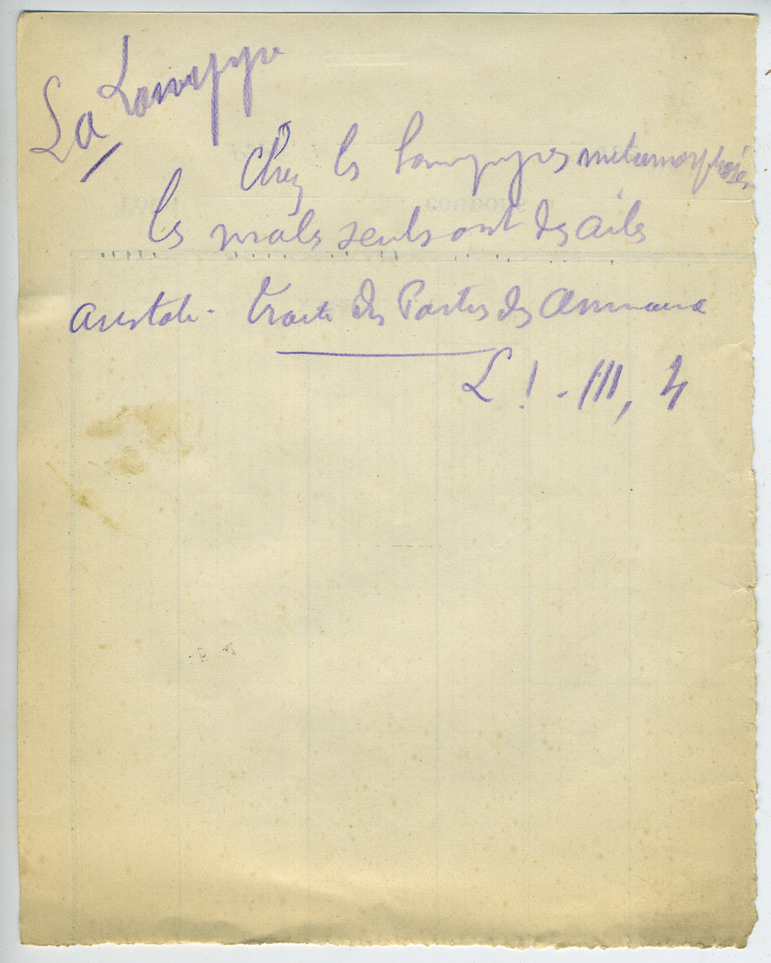 La Lampyre
Chez les Lampyres métamorphosés
les mâles seuls ont des ailes
Aristote. Traité des Parties des Animaux
L I. - III, 4